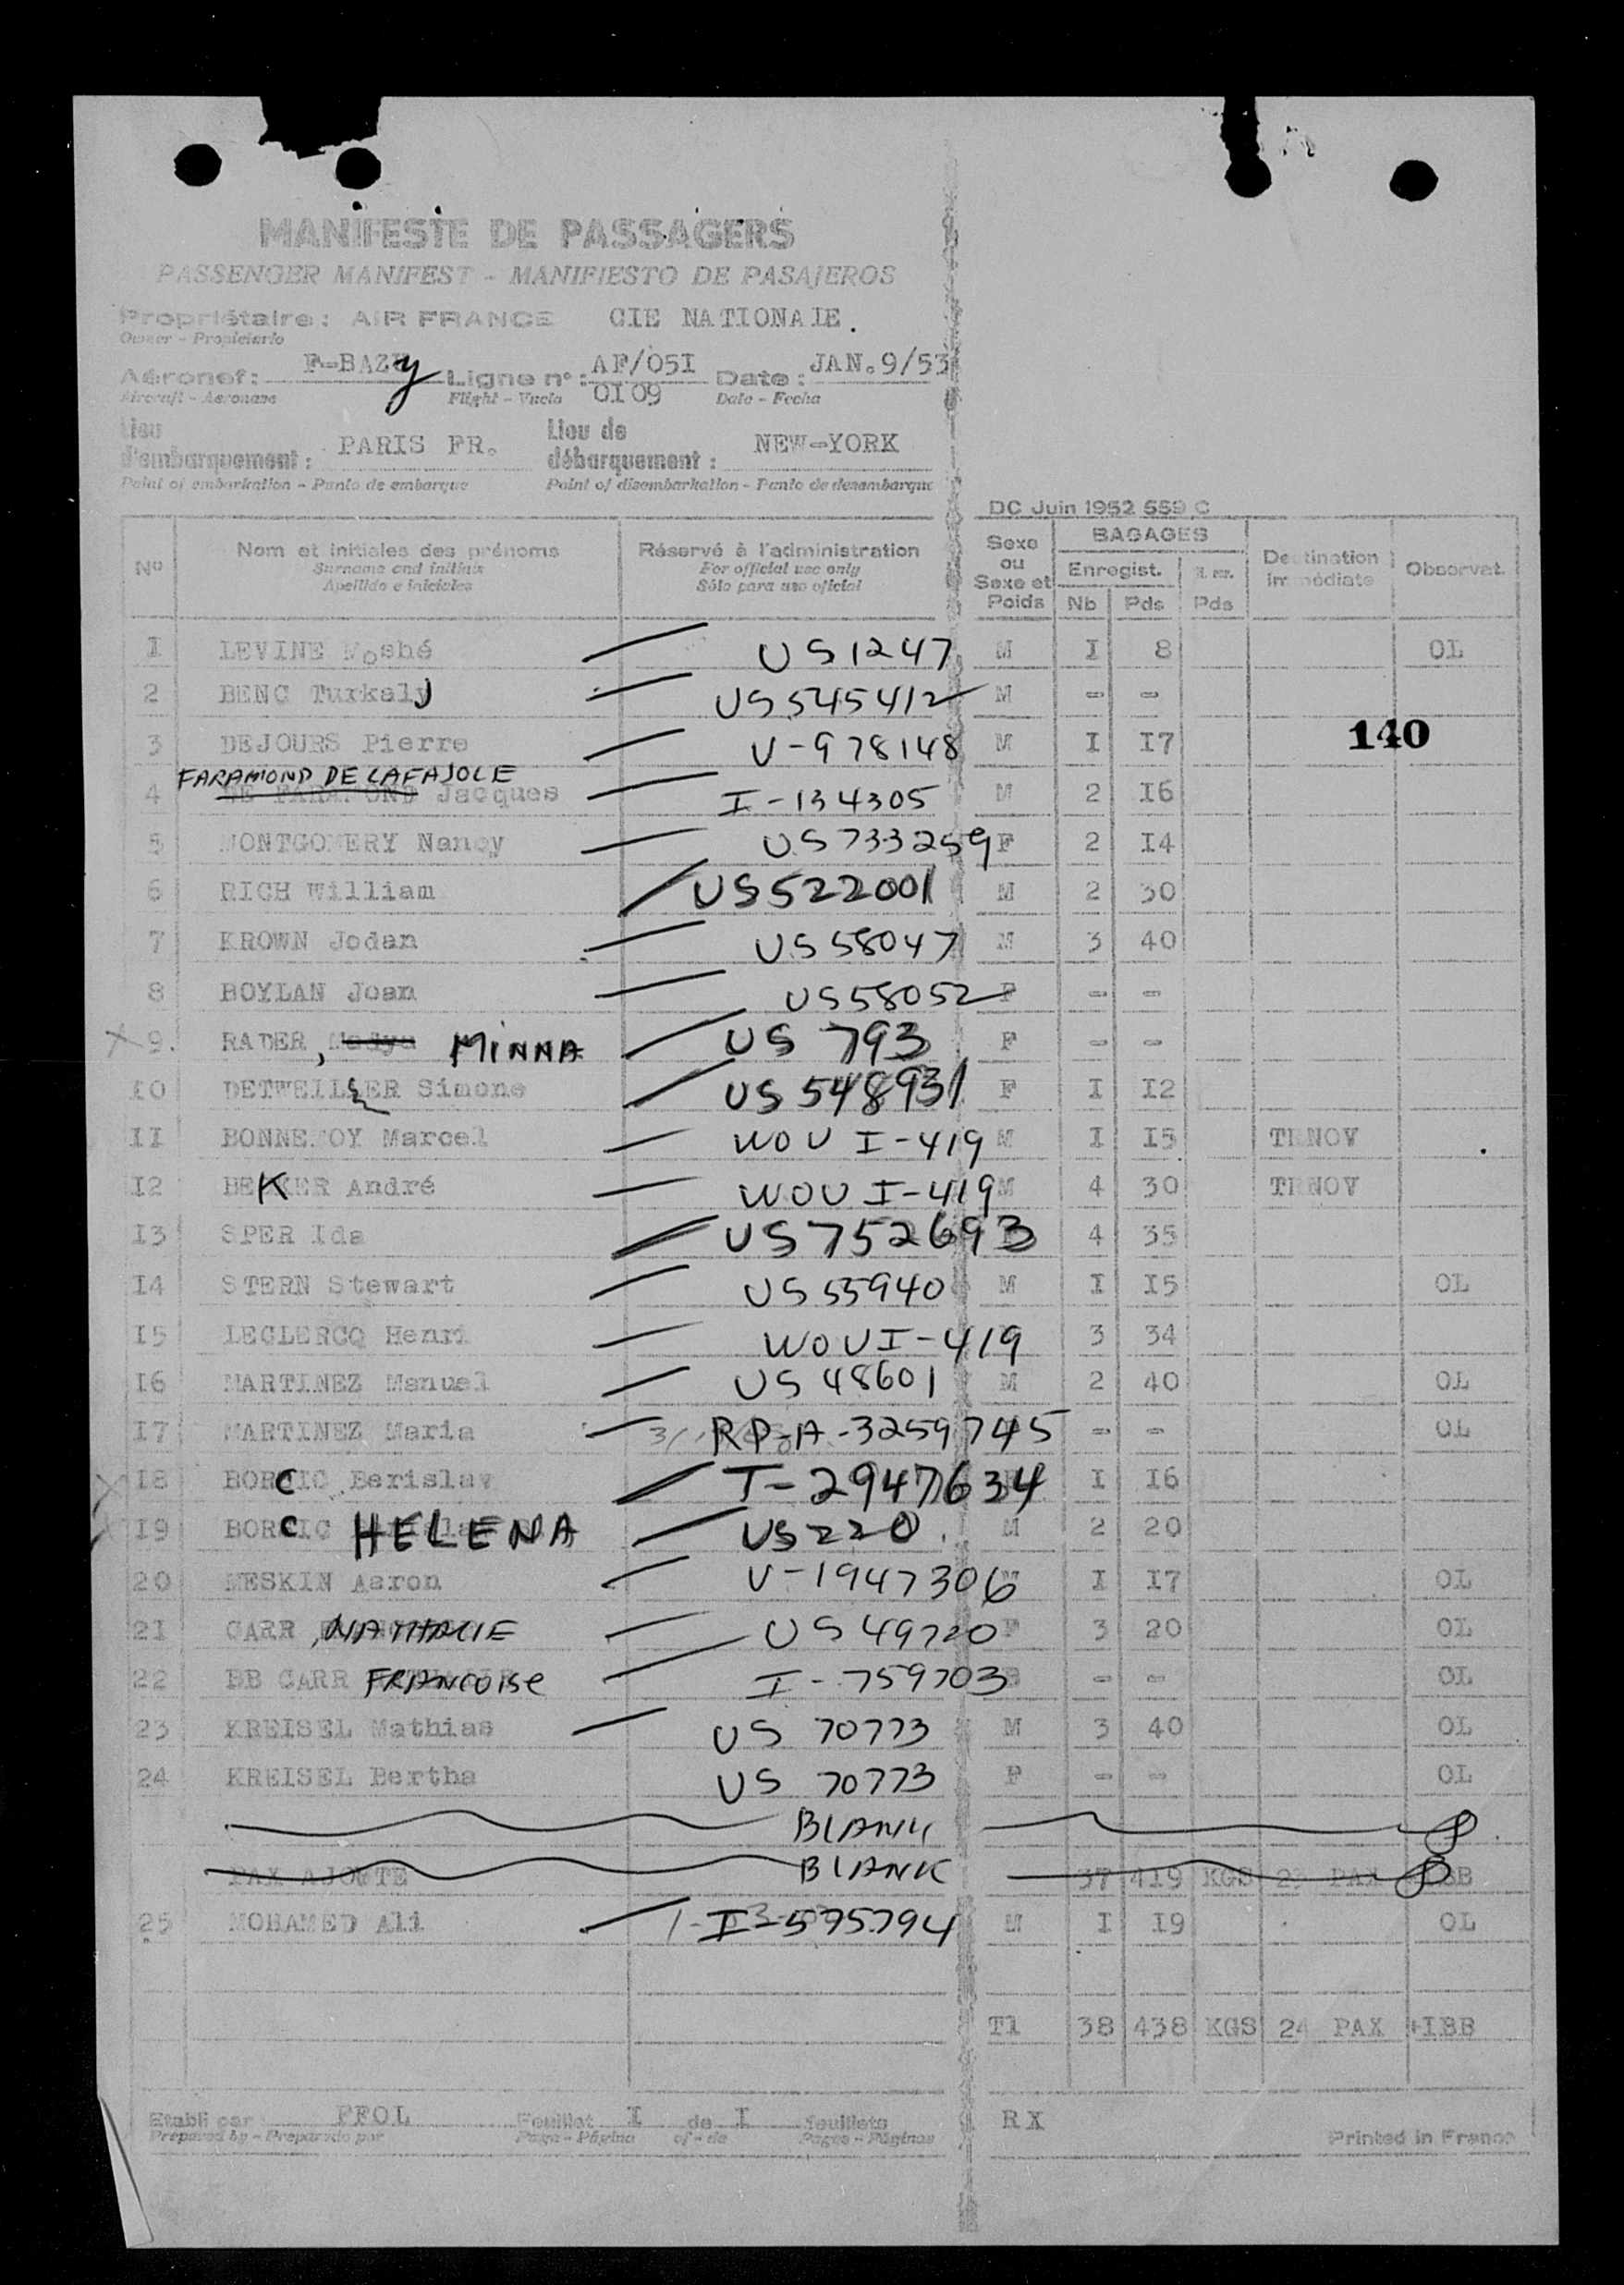 MANIFESTE DE PASSAGERS
PASSENGER MANIFEST - MANIFIESTO DE PASAJEROS
Propriétaire : AIR FRANCE CIE NATIONALE.
Owner - Propietario
Aéronef : F-BAZ y Ligne n° : AF/05I Date : JAN.9/53
Aircraft - Aeronave Flight - Vuelo 0I09 Date - Fecha
Lieu d'embarquement : PARIS FR. Lieu de débarquement : NEW-YORK
Point of embarkation - Punto de embarque Point of disembarkation - Punto de desembarque
DC Juin 1952 559 C
N° Nom et initiales des prénoms Réservé à l'administration Sexe ou Sexe et Poids BAGAGES Destination immédiate Observat.
Surname and initials For official use only Enregist.
Apellido e iniciales Sólo para uso oficial Nb Pds Pds
I LEVINE Moshé US 1247 M I 8 OL
2 BENC Turkalj US 545412 M - -
3 DEJOURS Pierre V-978148 M I I7
140
FARAMOND DE LAFAJOLE
4 DE FARAMOND Jacques I-134305 M 2 I6
5 MONTGOMERY Nancy US 733259 F 2 I4
6 RICH William US 522001 M 2 30
7 KROWN Jodan US 58047 M 3 40
8 BOYLAN Joan US 58052 F - -
X 9. RADER, MINNA US 793 F - -
I0 DETWEILER Simone US 548931 F I I2
II BONNEFOY Marcel WOV I-419 M I I5 TRNOV
I2 BEKKER André WOV I-419 M 4 30 TRNOV
I3 SPER Ida US 752693 4 35
I4 STERN Stewart US 55940 M I I5 OL
I5 LECLERCQ Henri WOV I-419 3 34
I6 MARTINEZ Manuel US 48601 M 2 40 OL
I7 MARTINEZ Maria RP-A-3259745 - - OL
X I8 BORCIC Berislav T-2947634 I I6
X I9 BORCIC HELENA US 220 M 2 20
20 MESKIN Aaron V-1947306 M I I7 OL
21 CARR, NATHALIE US 49720 F 3 20 OL
22 BB CARR FRANCOISE I-759703 - - OL
23 KREISEL Mathias US 70773 M 3 40 OL
24 KREISEL Bertha US 70773 F - - OL
BLANK
PAX AJOUTE BLANK 37 419 KGS 23 PAX IBB
25 MOHAMED Ali I-575794 M I I9 OL
Tl 38 438 KGS 24 PAX +IBB
Etabli par PFOL Feuillet I de I feuillets RX
Prepared by - Preparado por Page - Página of - de Pages - Páginas Printed in France